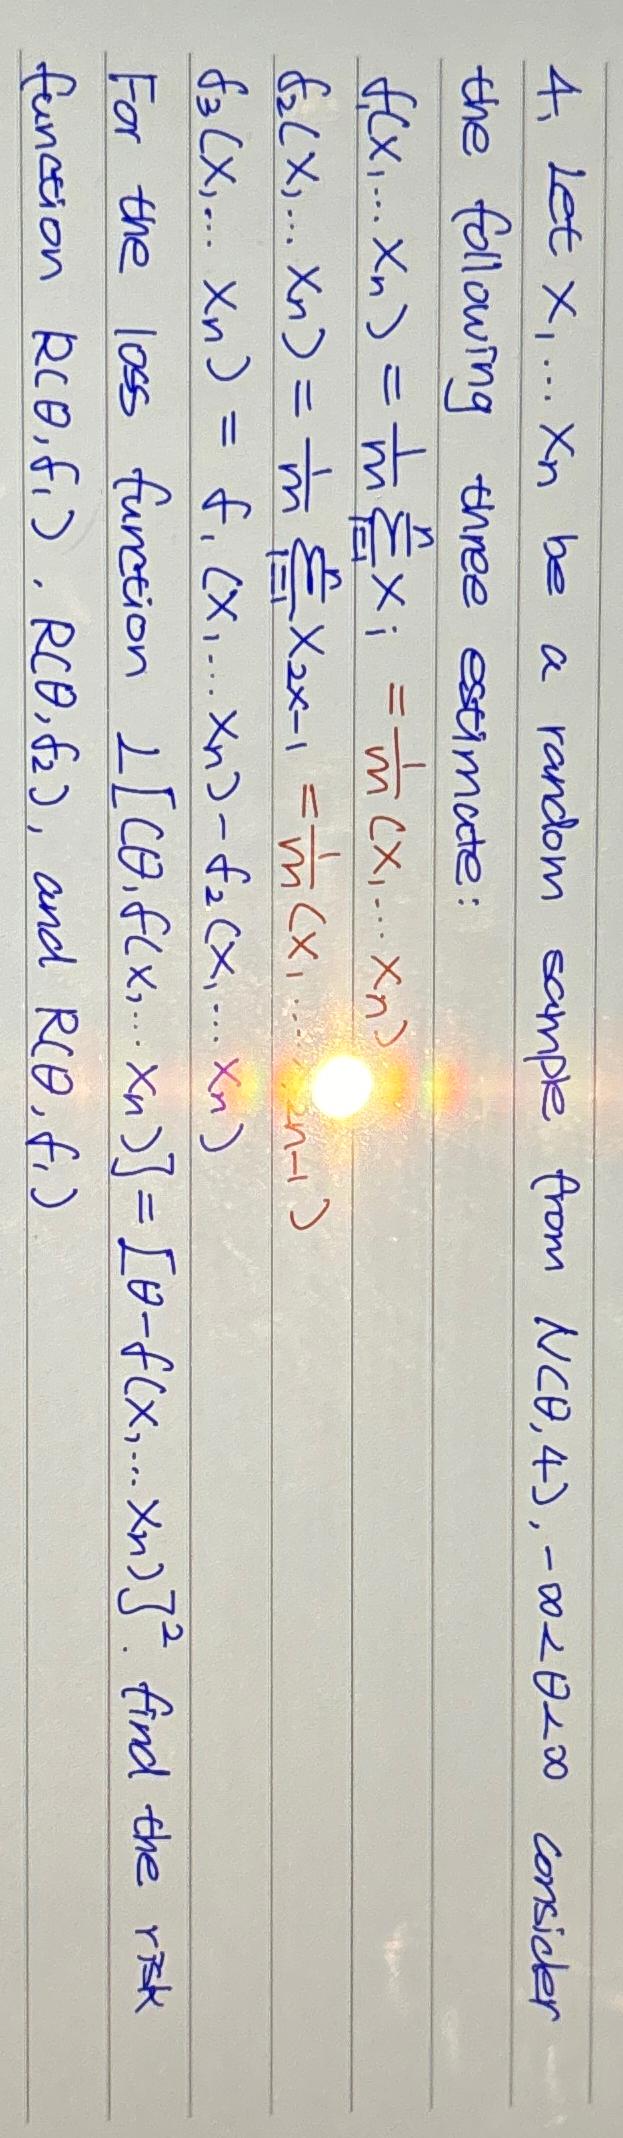 4. Let X1 ... Xn be a random sample from N(θ, 4), -∞ < θ < ∞ consider
the following three estimate:
f1(X1 ... Xn) = 1/m Σ_{i=1}^{n} Xi = 1/m (X1 ... Xn)
f2(X1 ... Xn) = 1/m Σ_{i=1}^{n} X2x-1 = 1/m (X1 ... 2n-1)
f3(X1 ... Xn) = f1(X1 ... Xn) - f2(X1 ... Xn)
For the loss function L[(θ, f(X1 ... Xn)] = [θ - f(X1 ... Xn)]². find the risk
function R(θ, f1), R(θ, f2), and R(θ, f1)